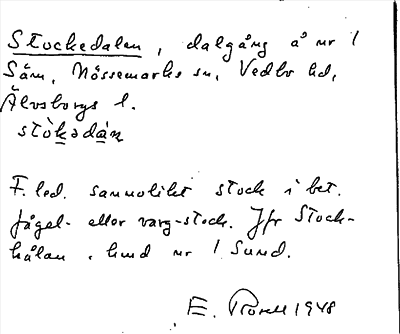 Stockedalen, dalgång å nr 1
Säm, Nössemarks sn, Vedbo hd,
Älvsborgs l.
stòkədán
F. led. sannolikt stock i bet.
fågel- eller varg-stock. Jfr Stock-
hålan, hmd nr 1 Sund.
E. 1948